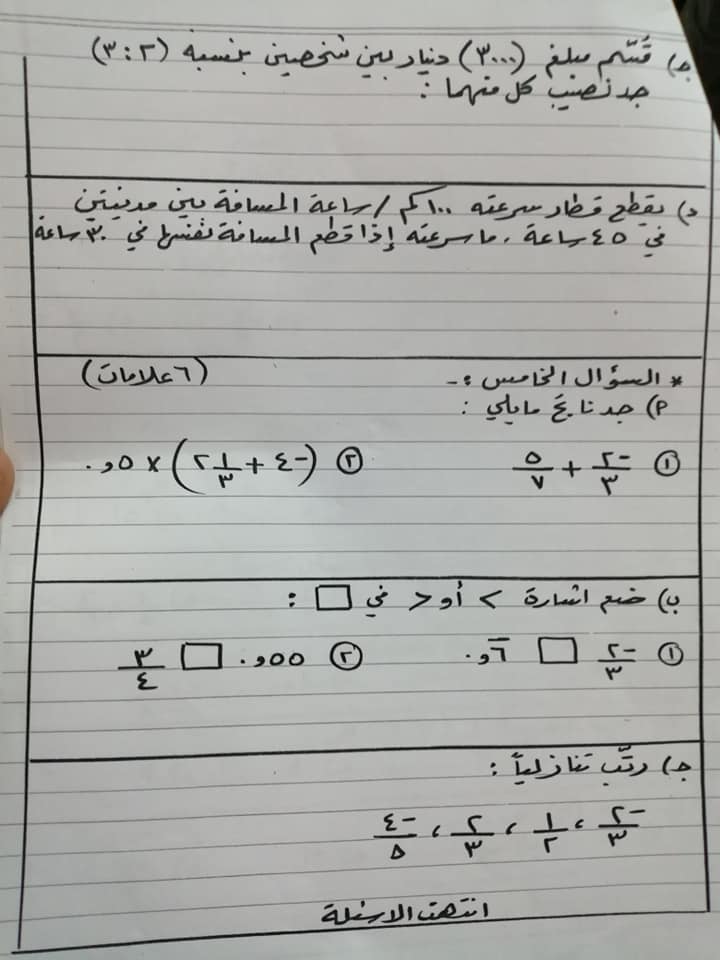 جـ) قُسّم مبلغ (٣٠٠٠) دينار بين شخصين بنسبة (٣:٢)
جد نصيب كل منهما :
د) يقطع قطار سرعته ١٠٠كم/ساعة المسافة بين مدينتين
في ٤٥ ساعة. ما سرعته إذا قطع المسافة نفسها في ٣٠ ساعة
* السؤال الخامس :- (٦ علامات)
P) جد ناتج ما يلي :
① -٢/٣ + ٥/٧ ② (-٤ + ٢ ١/٣) × ٠,٥
ب) ضع اشارة > أو < في □ :
① -٢/٣ □ ٠,٦̅ ② ٠,٥٥ □ ٣/٤
جـ) رتّب تنازلياً :
-٢/٣ ، ١/٢ ، ٢/٣ ، -٤/٥
انتهت الاسئلة